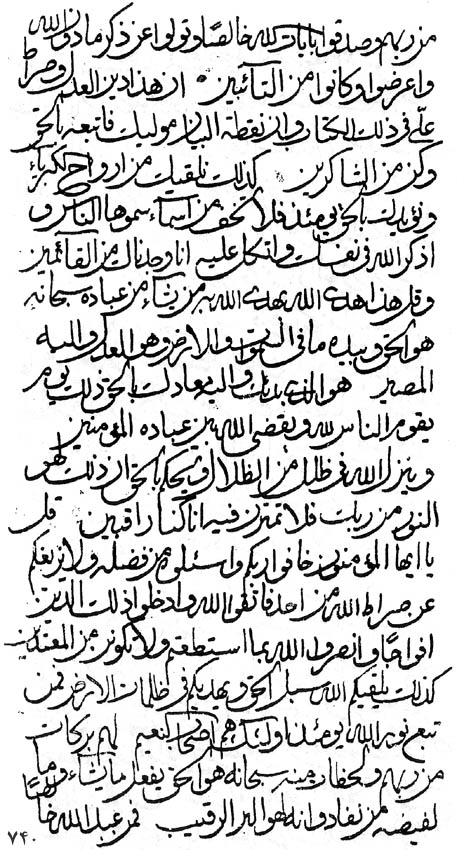 من ربهم وصدقوا بايات الله خالصا وتولوا عن ذكر ما دون الله
واعرضوا وكانوا من التائبين ان هذا دين العدل وصراط
علي في ذلك الكتاب وان نقطة البيان موليك فاتبعه بالحق
وكن من الشاكرين كذلك تلقيك من ارواح كبرياء
وتؤيدك بالحق يومئذ فلا تخف من اسماء سموها الناس و
اذكر الله في نفسك واتكل عليه انا وجدناك من القائمين
وقل هذا هدى الله يهدى الله به من يشاء من عباده سبحانه
هو الحق وبيده ما في السموات والارض وهو العدل واليه
المصير هو الذي بدئك واليه معادك بالحق ذلك يوم
يقوم الناس لله ويقضي الله بين عباده المؤمنين
وينزل الله في ظلل من الظلال ويحكم بالحق ان ذلك لهو
النبئ من ربك فلا تمترن فيه انا كنا راقبين قل
يا ايها المؤمنون خافوا ربكم واسئلوه من فضله ولا يزيغكم
عن صراط الله من احد فاتقوا الله وادخلوا ذلك الدين
افواجا وانصروا الله بما استطعتم ولا تكونن من المعتدين
كذلك يلقيكم الله سبل الحق ويهديكم في ظلمات الارض فمن
تبع نوير الله يومئذ اولئك هم اصحاب النعيم لهم بركات
من ربهم والحفاد منه سبحانه هو الحق يفعل ما يشاء وما
لفيضه من نفاد وانه لهو البر الرقيب فمن عبد الله خالصا
٧٤٠